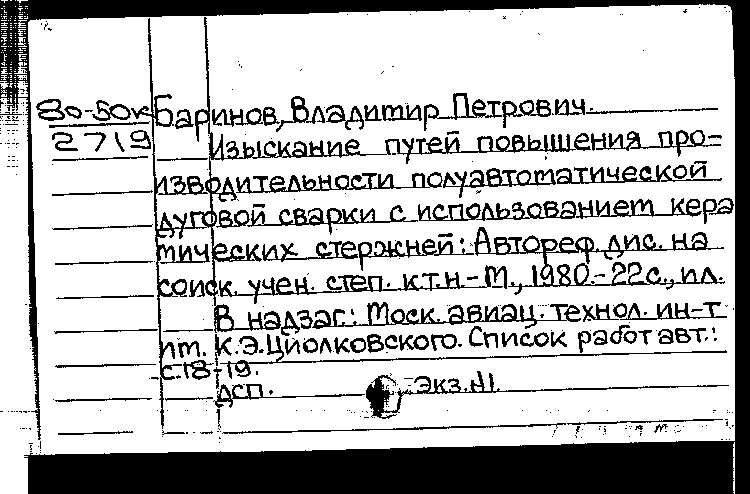 80-50к Баринов, Владимир Петрович.
2719 Изыскание путей повышения про-
изводительности полуавтоматической
дуговой сварки с использованием кера
мических стержней: Автореф. дис. на
соиск. учен. степ. к.т.н.-М., 1980.-22с., ил.
В надзаг.: Моск. авиац. технол. ин-т
им. К.Э.Циолковского. Список работ авт.:
с.18-19.
ДСП. Экз.№1.